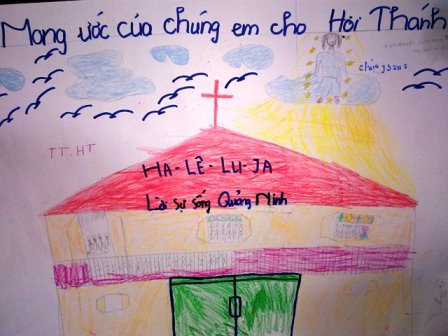 Mong ước của chúng em cho Hội Thánh
chúa jssus
TT.HT
HA-LÊ-LU-JA
Lời sự sống Quảng Ninh